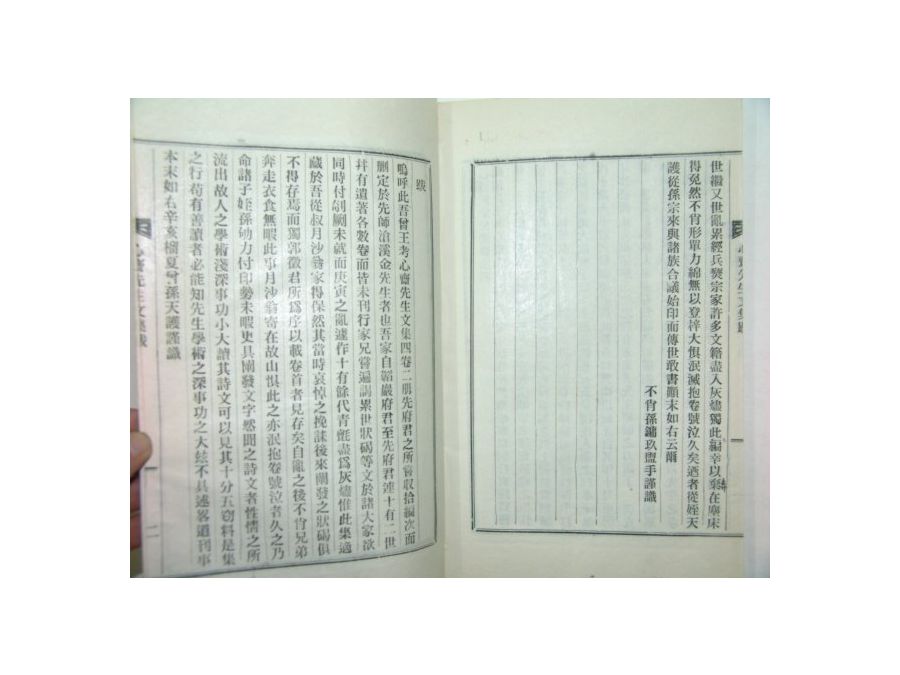 世繼又世亂累經兵燹宗家許多文籍盡入灰燼獨此編幸以藁在塵床
得免然不肖形單力綿無以登梓大惧泯滅抱卷號泣久矣迺者從姪天
護從孫宗來與諸族合議始印而傳世敢書顚末如右云爾
不肖孫鏞玖盥手謹識
心齋先生文集跋
跋
嗚呼此吾曾王考心齋先生文集四卷二册先府君之所嘗收拾編次而
刪定於先師滄溪金先生者也吾家自嵋巖府君至先府君連十有二世
幷有遺著各數卷而皆未刊行家兄嘗遍謁累世狀碣等文於諸大家欲
同時付剞劂未就而庚寅之亂遽作十有餘代青氈盡爲灰燼惟此集適
藏於吾從叔月沙翁家得保然其當時哀悼之挽誄後來闡發之狀碣俱
不得存焉而獨郭徵君所爲序以載卷首者見存矣自亂之後不肖兄弟
奔走衣食無暇此事月沙翁寄在故山惧此之亦泯抱卷號泣者久之乃
命諸子姪孫劬力付印勢未暇更具闡發文字然聞之詩文者性情之所
流出故人之學術淺深事功小大讀其詩文可以見其十分五窃料是集
之行苟有善讀者必能知先生學術之深事功之大玆不具述畧道刊事
本末如右辛亥榴夏曾孫天護謹識
心齋先生文集跋
二